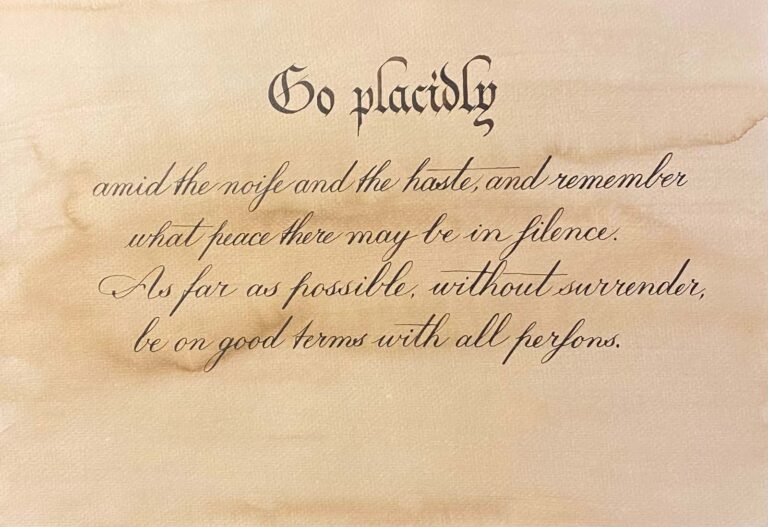 Go placidly
amid the noiſe and the haste, and remember
what peace there may be in ſilence.
As far as possible, without surrender,
be on good terms with all perſons.